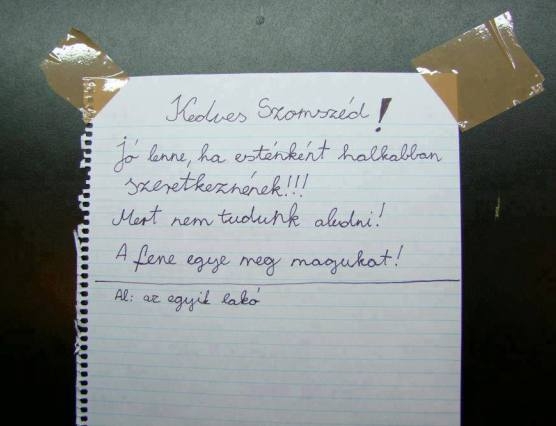 Kedves Szomszéd!
Jó lenne, ha esténként halkabban
szeretkeznének!!!
Mert nem tudunk aludni!
A fene egye meg magukat!
Al: az egyik lakó